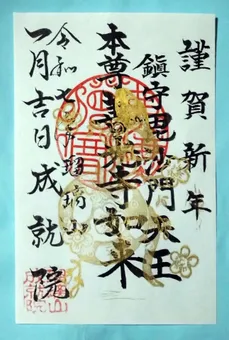 謹賀新年
鎮守毘沙門天王
本尊善光寺如来
令和七年 瑠璃山
一月吉日成就院